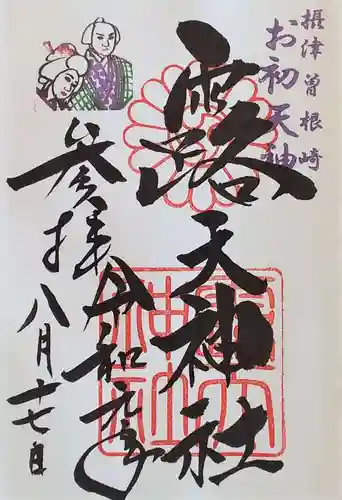 摂津曽根崎
お初天神
露天神社
参拝令和元年
八月十七日